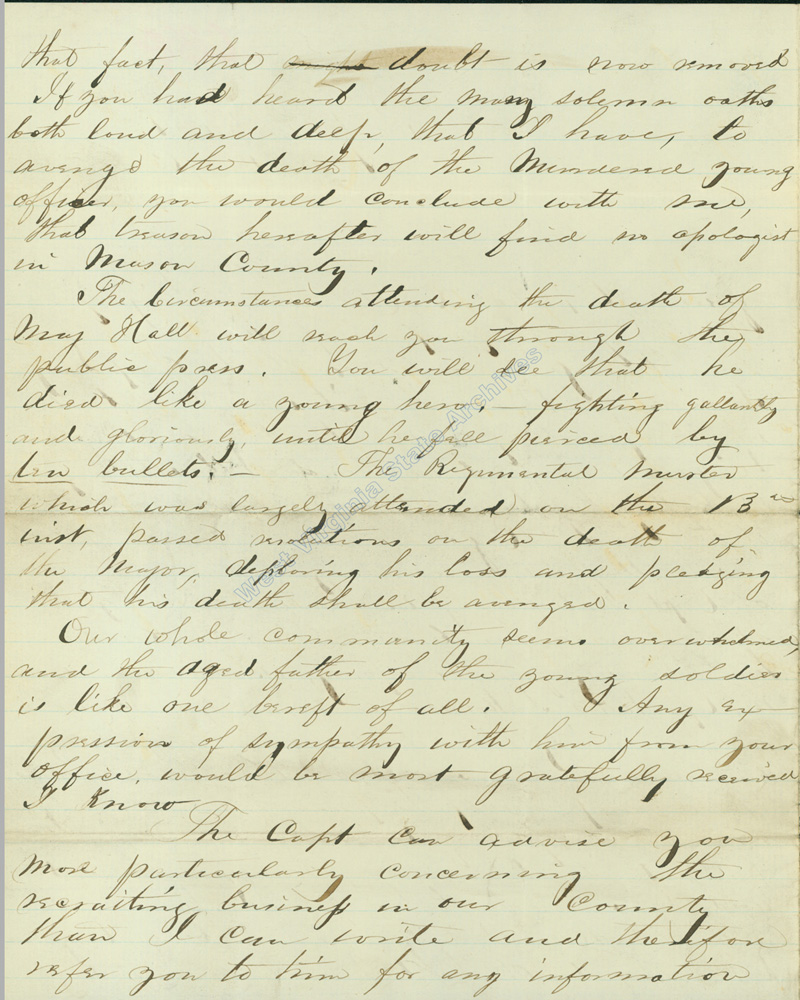 that fact, that doubt is now removed
If you had heard the many solemn oaths
both loud and deep, that I have, to
avenge the death of the Murdered young
officer, you would conclude with me,
that treason hereafter will find no apologist
in Mason County.
The Circumstances attending the death of
Maj Hall will reach you through the
public press. You will see that he
died like a young hero, – fighting gallantly
and gloriously, until he fell pierced by
ten bullets. – The Regimental Muster
which was largely attended on the 13th
inst, passed resolutions on the death of
the Major, deploring his loss and pledging
that his death shall be avenged.
Our whole community seems overwhelmed,
and the aged father of the young soldier
is like one bereft of all. Any ex-
pression of sympathy with him from your
office, would be most gratefully received
I know
The Capt can advise you
more particularly concerning the
recruiting business in our County
than I can write and therefore
refer you to him for any information
West Virginia State Archives